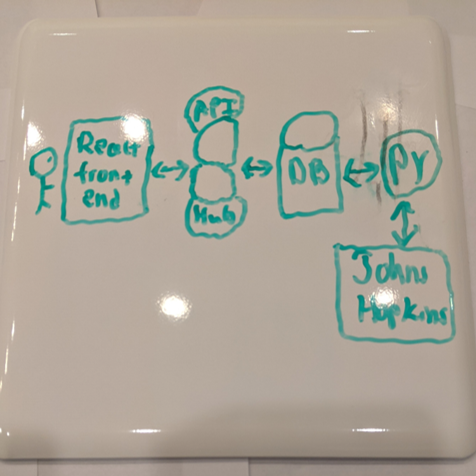 React
front
end
API
Hub
DB
PY
Johns
Hopkins